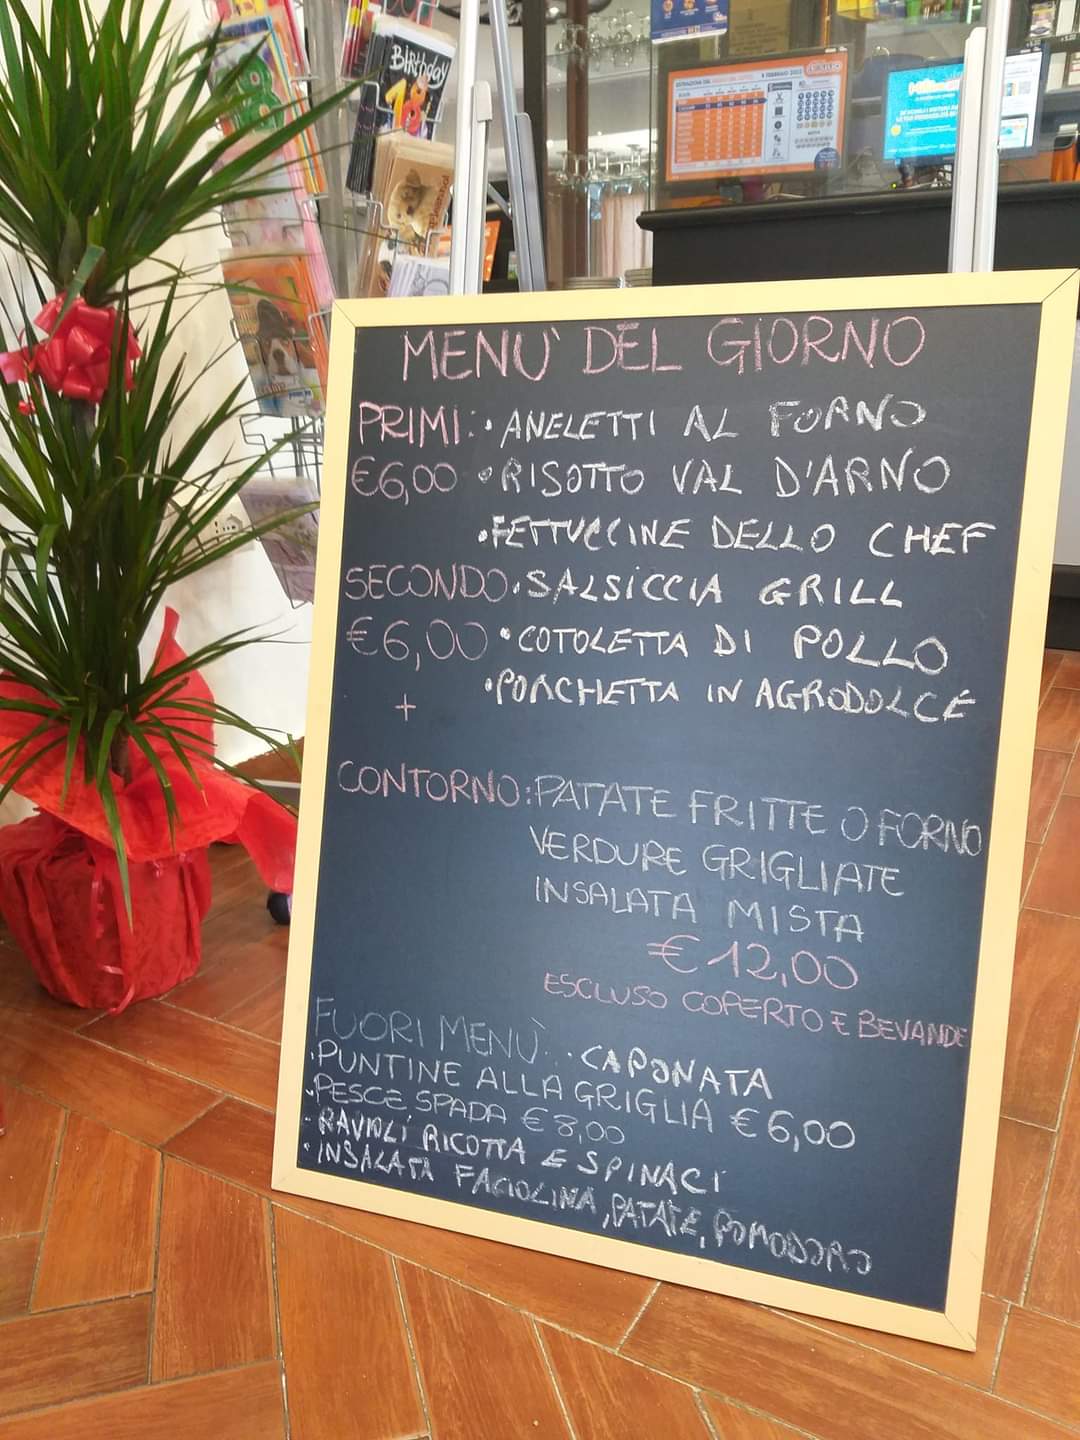 Birthday
18
8 FEBBRAIO 2022
MENU' DEL GIORNO
PRIMI: • ANELETTI AL FORNO
€6,00 • RISOTTO VAL D'ARNO
• FETTUCCINE DELLO CHEF
SECONDO • SALSICCIA GRILL
€6,00 • COTOLETTA DI POLLO
• PORCHETTA IN AGRODOLCE
+
CONTORNO: PATATE FRITTE O FORNO
VERDURE GRIGLIATE
INSALATA MISTA
€12,00
ESCLUSO COPERTO E BEVANDE
FUORI MENÙ... CAPONATA
• PUNTINE ALLA GRIGLIA €6,00
• PESCE SPADA €8,00
• RAVIOLI RICOTTA E SPINACI
• INSALATA FAGIOLINA, PATATE, POMODORO